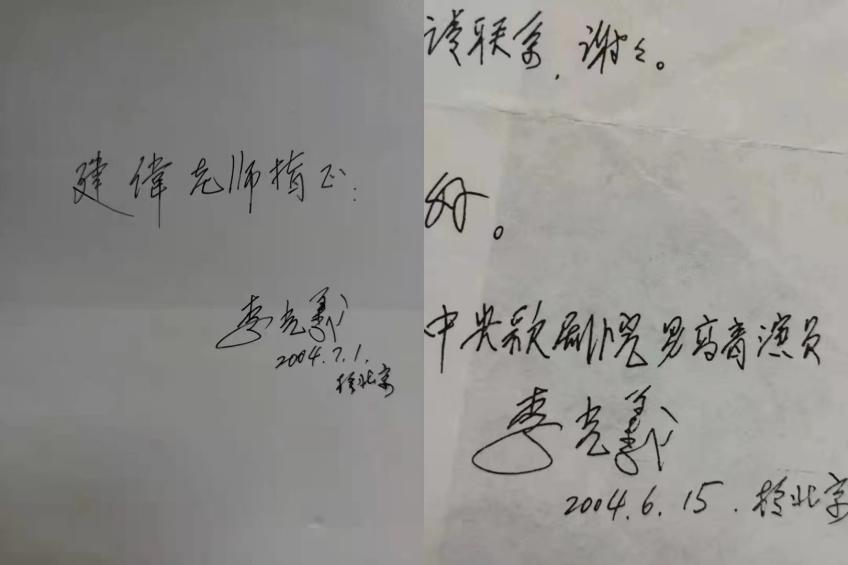 建偉老师指正:
李光羲
2004.7.1.
於北京
请联系，谢々。
好。
中央歌剧院男高音演员
李光羲
2004.6.15.於北京